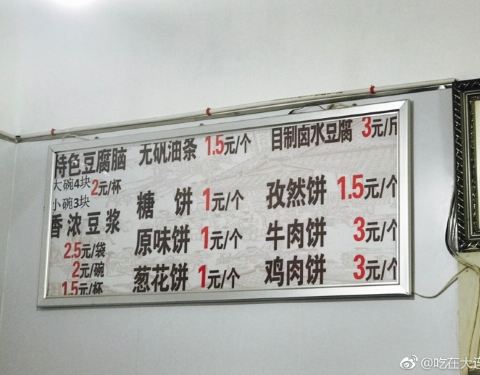 特色豆腐脑
大碗4块
小碗3块
2元/杯
香浓豆浆
2.5元/袋
2元/碗
1.5元/杯
无矾油条 1.5元/个
糖饼 1元/个
原味饼 1元/个
葱花饼 1元/个
自制卤水豆腐 3元/斤
孜然饼 1.5元/个
牛肉饼 3元/个
鸡肉饼 3元/个
@吃在大连